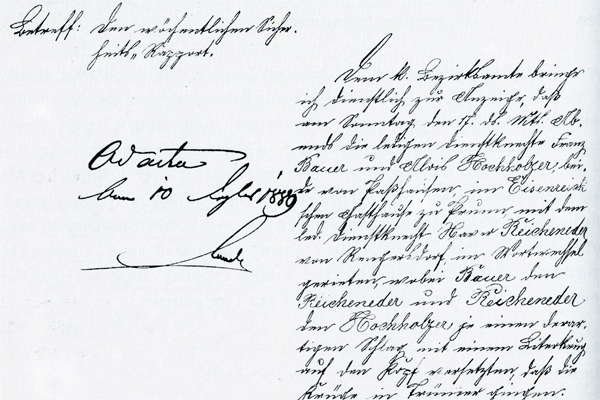 Betreff: Den wöchentlichen Sicher-
heits-Rapport.
Ad acta
am 10 1889
Dem k. Bezirksamte bringe
ich dienstlich zur Anzeige, daß
am Sonntag, den 17. ds. Mts. Ab-
ends die ledigen Dienstknechte Franz
Bauer und Alois Hochholzer, bei-
de von Paßhausen, im Eisenreich-
schen Gasthause zu Prunn mit dem
led. Dienstknecht Xaver Reicheneder
von Rengersdorf im Wortwechsel
gerieten, wobei Bauer den
Reicheneder und Reicheneder
den Hochholzer je einen derar-
tigen Schlag mit einem Literkrug
auf den Kopf versetzten, daß die
Krüge in Trümmer gingen.